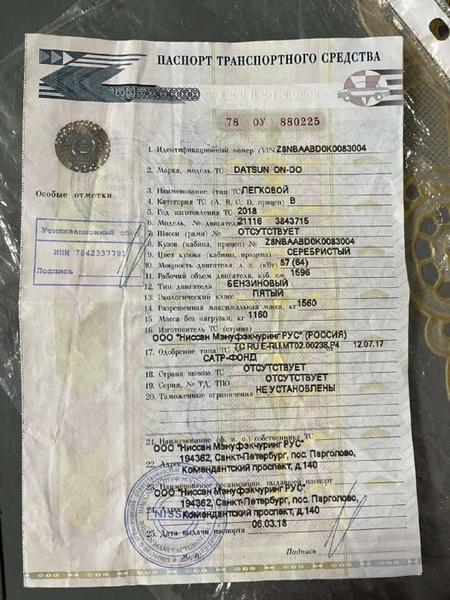 ПАСПОРТ ТРАНСПОРТНОГО СРЕДСТВА
78 ОУ 880225
1. Идентификационный номер (VIN) Z8NBAABD0K0083004
2. Марка, модель ТС DATSUN ON-DO
Особые отметки
3. Наименование (тип ТС) ЛЕГКОВОЙ
4. Категория ТС (A, B, C, D, прицеп) B
5. Год изготовления ТС 2018
6. Модель, № двигателя 21116 3843715
7. Шасси (рама) № ОТСУТСТВУЕТ
8. Кузов (кабина, прицеп) № Z8NBAABD0K0083004
9. Цвет кузова (кабины, прицепа) СЕРЕБРИСТЫЙ
10. Мощность двигателя, л. с. (кВт) 87 (64)
11. Рабочий объем двигателя, куб. см 1596
12. Тип двигателя БЕНЗИНОВЫЙ
13. Экологический класс ПЯТЫЙ
14. Разрешенная максимальная масса, кг 1560
15. Масса без нагрузки, кг 1160
16. Изготовитель ТС (страна)
ООО "Ниссан Мэнуфэкчуринг РУС" (РОССИЯ)
17. Одобрение типа ТС ТС RU E-RU.MT02.00238.P4 12.07.17
САТР-ФОНД
18. Страна вывоза ТС ОТСУТСТВУЕТ
19. Серия, № ТД, ТПО ОТСУТСТВУЕТ
20. Таможенные ограничения НЕ УСТАНОВЛЕНЫ
Утилизационный сбор
ИНН 7842337791
Подпись
21. Наименование (ф. и. о.) собственника ТС
ООО "Ниссан Мэнуфэкчуринг РУС"
22. Адрес 194362, Санкт-Петербург, пос. Парголово,
Комендантский проспект, д.140
23. Наименование организации, выдавшей паспорт
ООО "Ниссан Мэнуфэкчуринг РУС"
24. Адрес 194362, Санкт-Петербург, пос. Парголово,
Комендантский проспект, д.140
25. Дата выдачи паспорта 06.03.18
Подпись
NISSAN